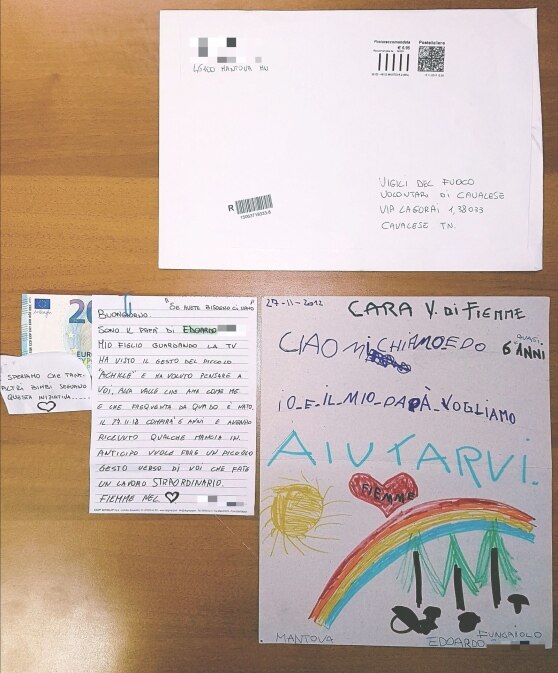 46100 MANTOVA MN
Posteraccomandata
Posteitaliane
€ 6.95
R
VIGILI DEL FUOCO
VOLONTARI DI CAVALESE
VIA LAGORAI 1, 38033
CAVALESE TN.
20
EURO
SPERIAMO CHE TANTI
ALTRI BIMBI SEGUANO
QUESTA INIZIATIVA....
SE AVETE BISOGNO CI SIAMO
BUONGIORNO.
SONO IL PAPÀ DI EDOARDO
MIO FIGLIO GUARDANDO LA TV
HA VISTO IL GESTO DEL PICCOLO
"ACHILLE" E HA VOLUTO PENSARE A
VOI, ALLA VALLE CHE AMA COME ME
E CHE FREQUENTA DA QUANDO È NATO.
IL 29.11.18 COMPIRÀ 6 ANNI E AVENDO
RICEVUTO QUALCHE MANCIA IN
ANTICIPO VUOLE FARE UN PICCOLO
GESTO VERSO DI VOI CHE FATE
UN LAVORO STRAORDINARIO.
FIEMME NEL
27-11-2012
CARA V. DI FIEMME
CIAO MI CHIAMO EDO
QUASI
6 ANNI
IO E IL MIO PAPÀ VOGLIAMO
AIUTARVI.
FIEMME
MANTOVA
EDOARDO
FUNGAIOLO